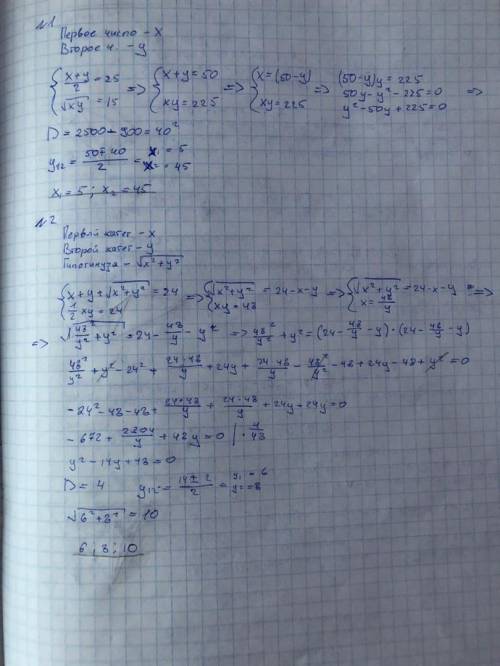 №1
Первое число - x
Второе ч. - y
{ (x+y)/2 = 25 ; √xy = 15 => { x+y=50 ; xy=225 => { x=(50-y) ; xy=225 => (50-y)y = 225
50y - y² - 225 = 0 =>
y² - 50y + 225 = 0
D = 2500 - 900 = 40²
y12 = (50 ± 40)/2 = x1 = 5
x2 = 45
x1 = 5 ; x2 = 45
№2
Первый катет - x
Второй катет - y
Гипотинуза - √x²+y²
{ x+y+√x²+y² = 24 ; 1/2 xy = 24 => { √x²+y² = 24-x-y ; xy = 48 => { √x²+y² = 24-x-y ; x = 48/y =>
=> √(48²/y² + y²) = 24 - 48/y - y => 48²/y² + y² = (24 - 48/y - y) · (24 - 48/y - y)
48²/y² + y² - 24² + 24·48/y + 24y + 24·48/y - 48²/y² - 48 + 24y - 48 - y² = 0
-24² - 48 - 48 + 24·48/y + 24·48/y + 24y + 24y = 0
- 672 + 2304/y + 48y = 0 | · y/48
y² - 14y + 48 = 0
D = 4 y12 = (14 ± 2)/2 = y1 = 6
y2 = 8
√6²+8² = 10
6 ; 8 ; 10